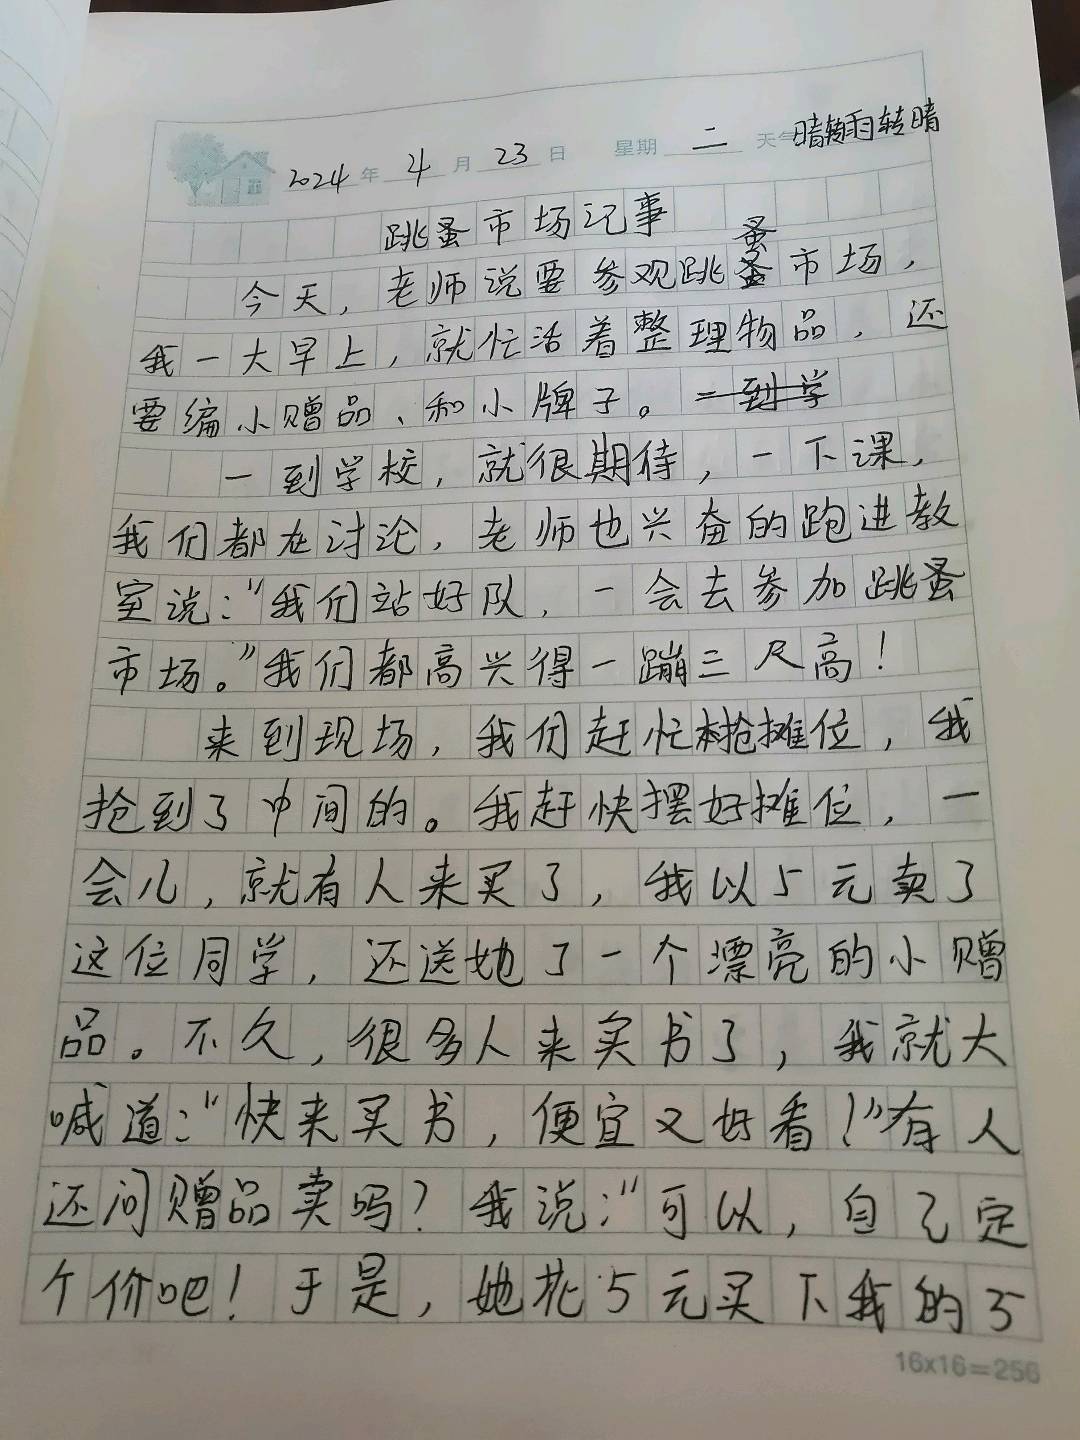 2024年4月23日 星期二 天气晴转雨转晴
跳蚤市场记事
今天，老师说要参观跳蚤市场，
我一大早上，就忙活着整理物品，还
要编小赠品、和小牌子。一到学
一到学校，就很期待，一下课，
我们都在讨论，老师也兴奋的跑进教
室说："我们站好队，一会去参加跳蚤
市场。"我们都高兴得一蹦三尺高！
来到现场，我们赶忙抢摊位，我
抢到了中间的。我赶快摆好摊位，一
会儿，就有人来买了，我以5元卖了
这位同学，还送她了一个漂亮的小赠
品。不久，很多人来买书了，我就大
喊道："快来买书，便宜又好看！"有人
还问赠品卖吗？我说："可以，自己定
个价吧！于是，她花5元买下我的5
16×16=256